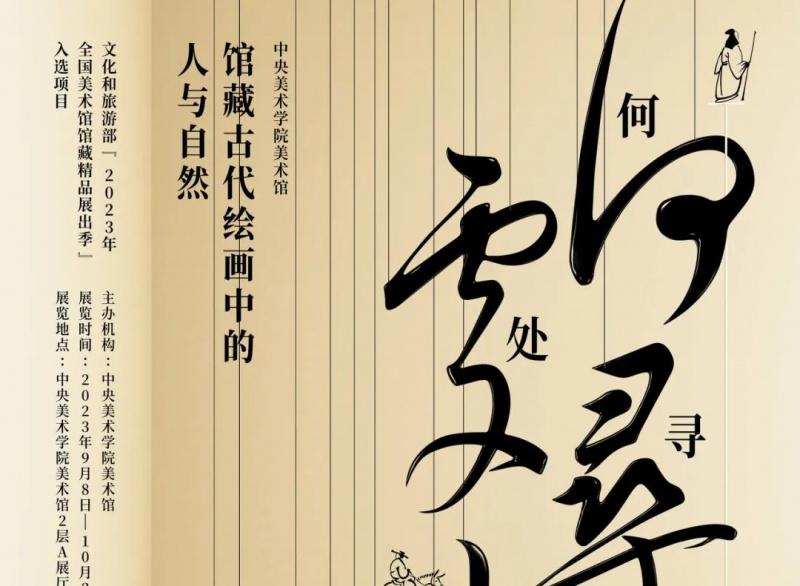 何
處
尋
何
处
寻
中央美术学院美术馆
馆藏古代绘画中的
人与自然
文化和旅游部『2023年
全国美术馆馆藏精品展出季』
入选项目
主办机构：中央美术学院美术馆
展览时间：2023年9月8日—10月
展览地点：中央美术学院美术馆2层A展厅